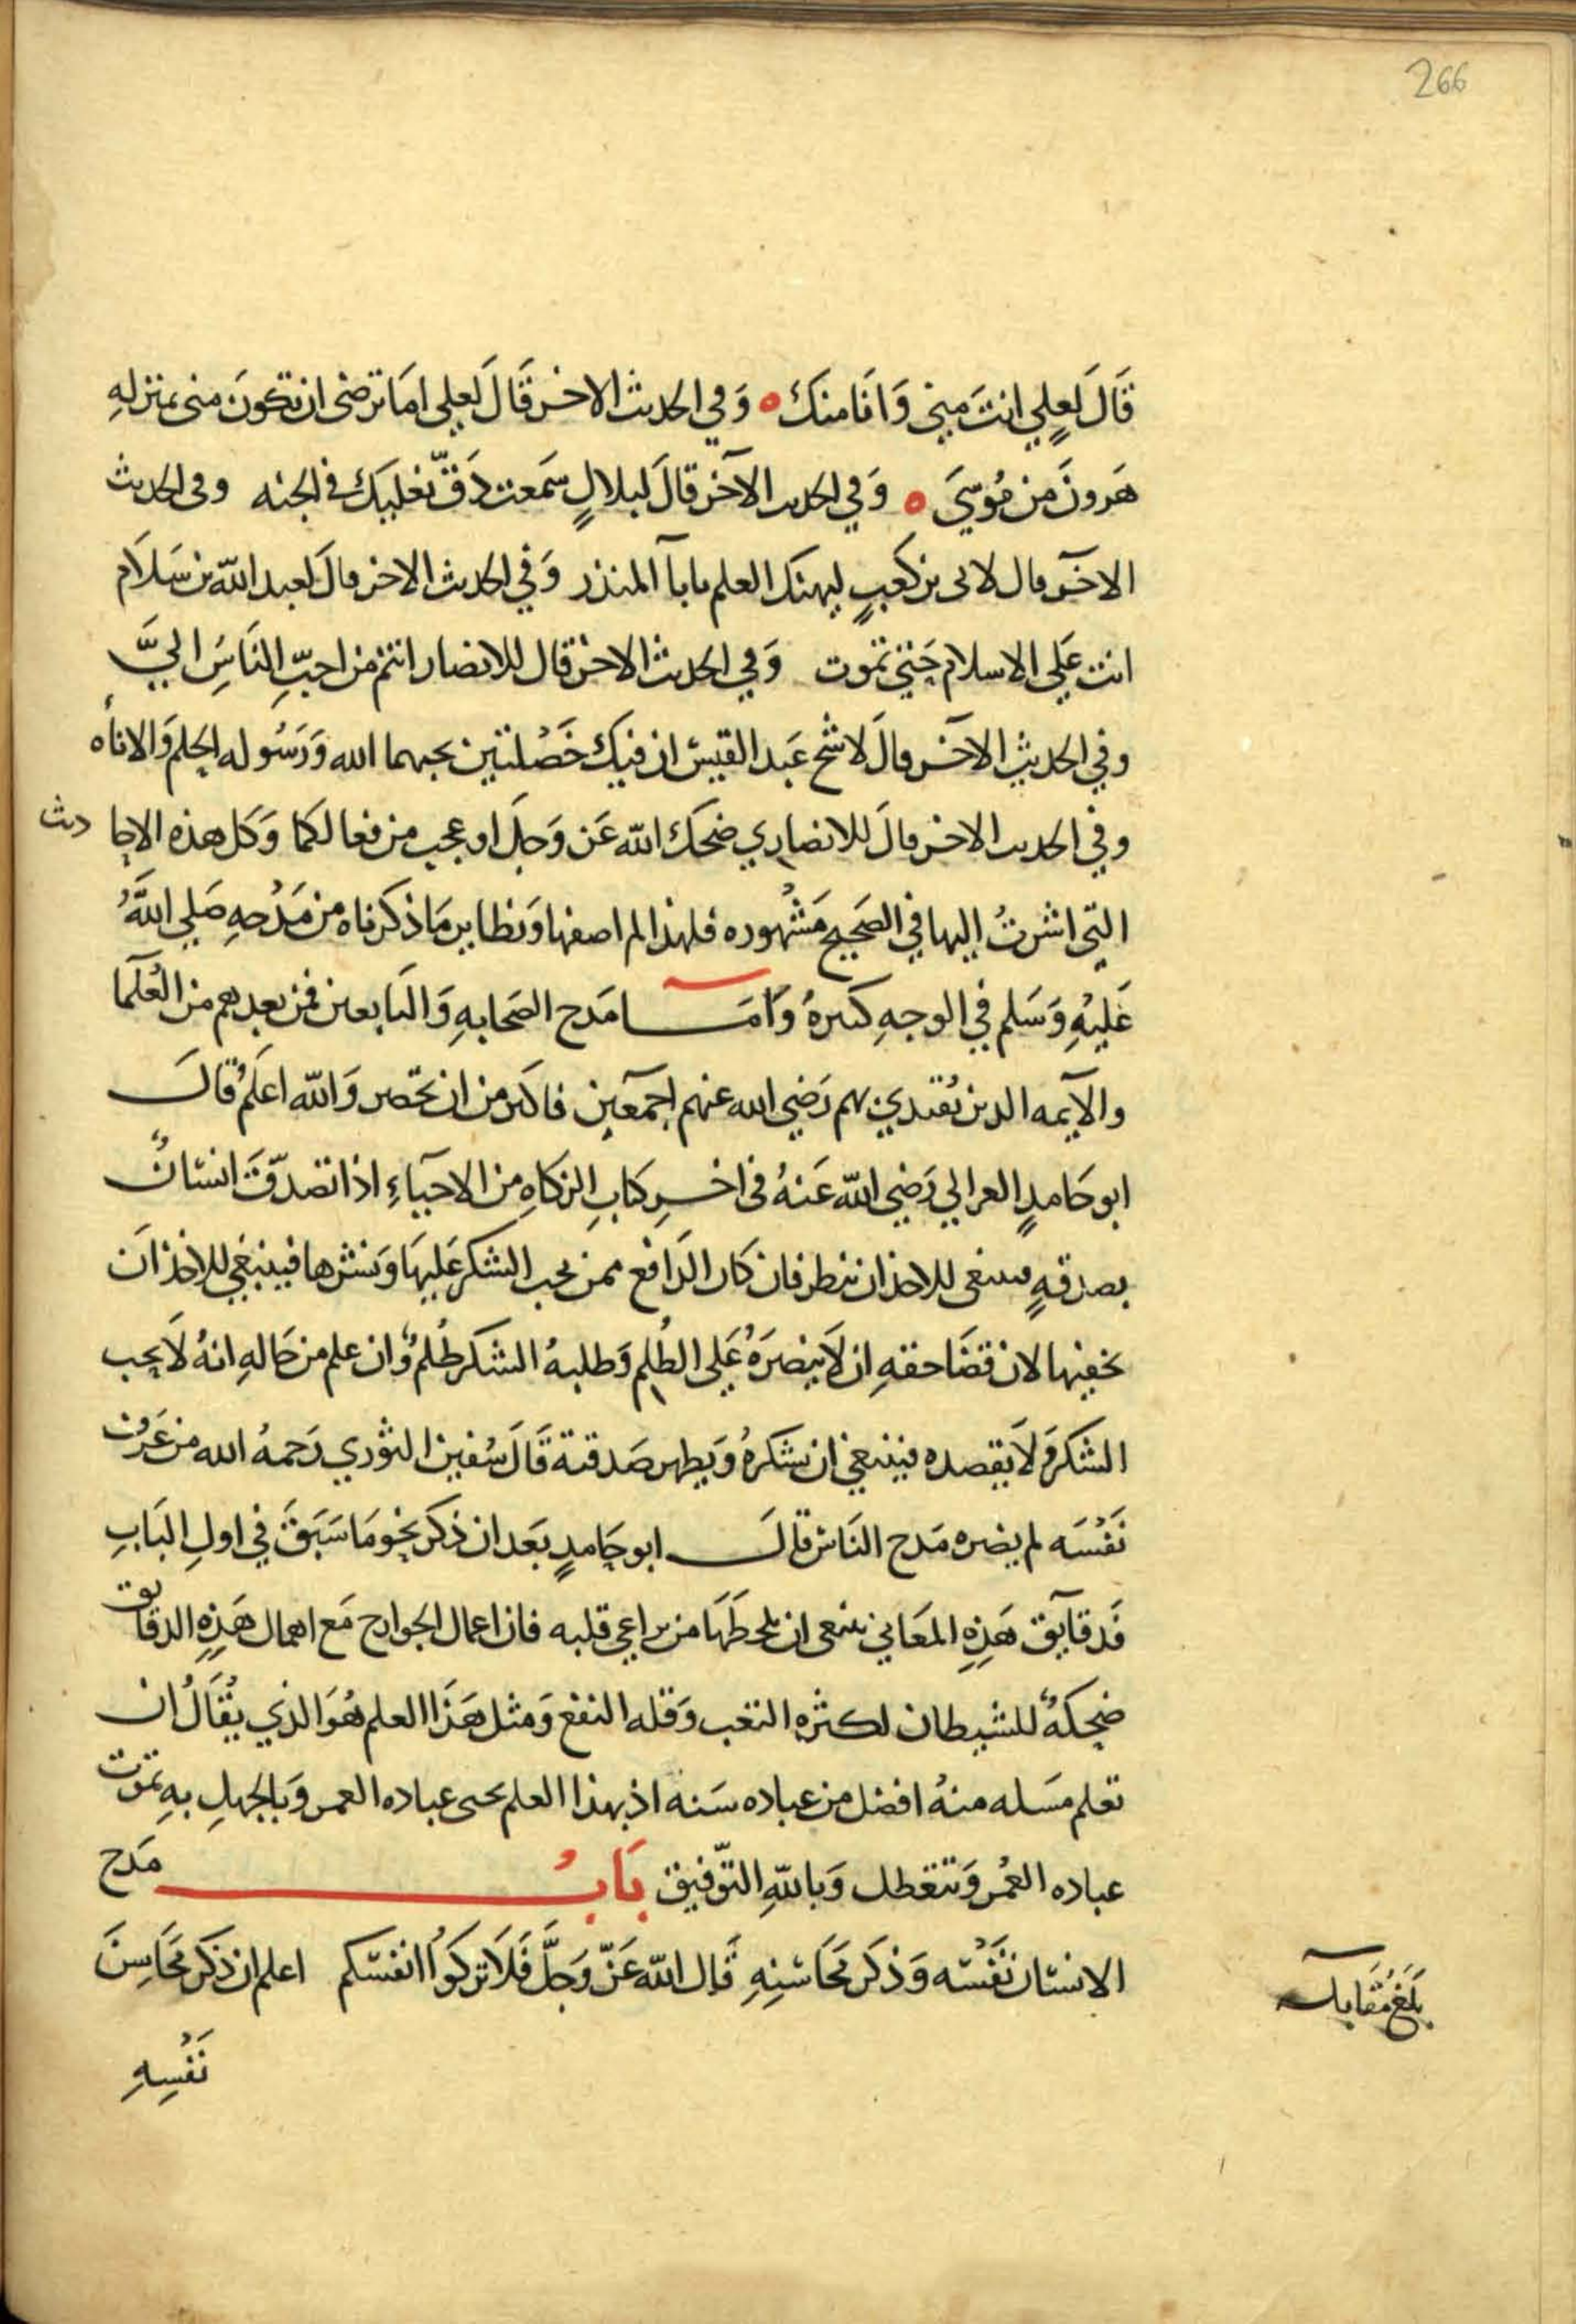 266
قَالَ لَعِلِي انتَ مِني وَانَا منكَ ه وَفي الحديث الاخر قَالَ لعلي امَا ترضى ان تكونَ منى بمنزلهِ
هَرونَ من مُوسَي ه وَفي الحديث الآخر قالَ لبلالٍ سَمعت دَقّ نعليكَ في الجنه وفى الحديث
الاخر قال لابى بن كَعبٍ ليهنك العلم يا بآ المنذر وَفي الحديث الاخر قالَ لعبد اللّه بن سَلَام
انت عَلي الاسلام حَتي تموت وَفي الحديث الاخر قال للانصار انتم من احبّ النَاسِ اليَّ
وفي الحديثِ الآخر قالَ لاشج عَبد القيس ان فيكَ خَصْلتين يحبهما الله وَرَسُوله الحلم وَالاناه
وفي الحديث الاخر قالَ للانصاري ضحكَ اللّه عَز وَجلَ او عجب من فعالكما وَكل هذه الاحا ديث
التي اشرتُ اليها في الصَحيح مَشْهُوره فلهذا لم اصفها وَنظاير مَا ذكرناه من مَدْحهِ صَلي اللَّهُ
عَليْهِ وَسَلم في الوجهِ كثيرهُ وَامَا مَدح الصَحابهِ وَالتَابعين فمن بعدهم من العُلَمَا
والآيمه الذين يُقتدي بهم رَضي الله عنهم اجمَعين فاكثر من ان تحصر وَاللّه اعلَم قالَ
ابو حَامدٍ الغزالي رَضي اللّه عَنهُ فى اخرِ كتابِ الزكاهِ من الاحيَاءِ اذا تصدّقَ انسَانٌ
بصدقهٍ فينبغى للاخذ ان ينظر فان كَان الدَافع ممن يحب الشكر عَليهَا وَنشرها فينبَغي للاخذ اَن
يخفيها لان قضَا حقهِ ان لَا ينصرَهُ عَلي الظُلم وَطلبهُ الشكر ظُلمٌ وَان علم من حَالهِ انهُ لَا يحب
الشكر وَلَا يقصده فينبغي ان يشكرهُ وَيظهر صَدقتهَ قَالَ سُفين الثوري رَحمهُ الله من عَرَف
نَفْسَه لم يضره مَدح النَاس قالَ ابو حَامدٍ بَعد ان ذكر نحو مَا سَبَقَ في اولِ البَابِ
فَدقايق هَذِهِ المعَاني ينبغى ان يلحظهَا من يراعي قلبه فان اعمال الجوارح مَع اهمال هَذِهِ الدقايق
ضحكةٌ للشيطان لكثره التعب وَقله النفع وَمثل هَذَا العلم هُوَ الذي يُقَالُ ان
تعلم مَسله منهُ افضل من عباده سَنه اذ بهذا العلم تحيى عباده العمر وَبالجهلِ بهِ تموت
عباده العُمر وَتتعطل وَباللّهِ التوّفيق بَابُ مَدح
الانسَان نَفْسَه وَذكَر محَاسنِهِ قَال اللّه عَزّ وَجلَّ فَلَا تزكوا انفسكم اعلم ان ذكر محَاسِنَ
نَفْسِهِ
بَلَغَ مُقَابله